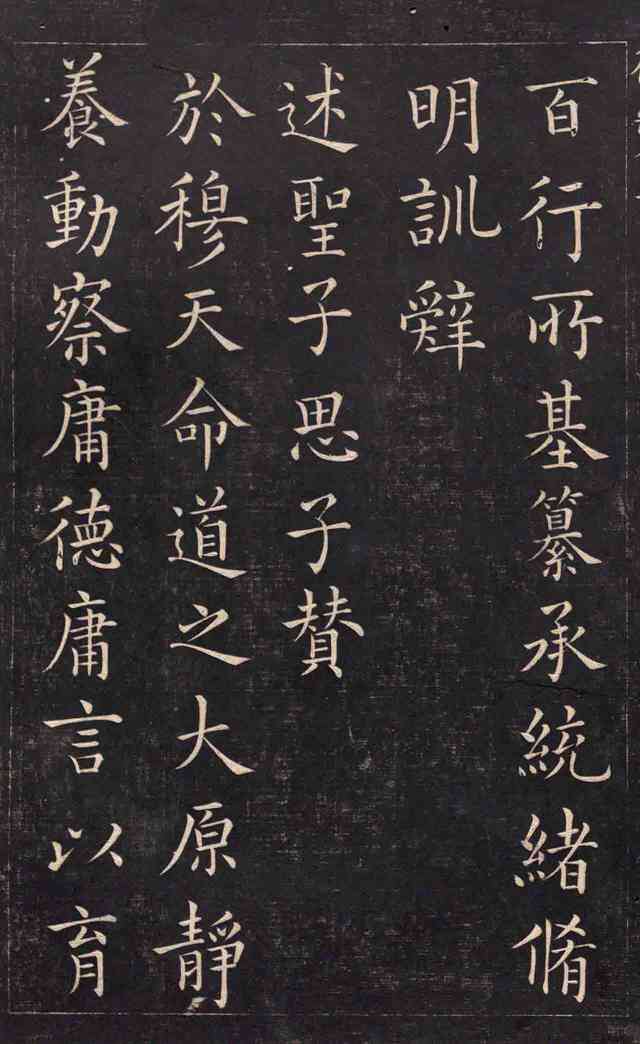 百行所基纂承統緒脩
明訓辭
述聖子思子賛
於穆天命道之大原靜
養動察庸德庸言以育